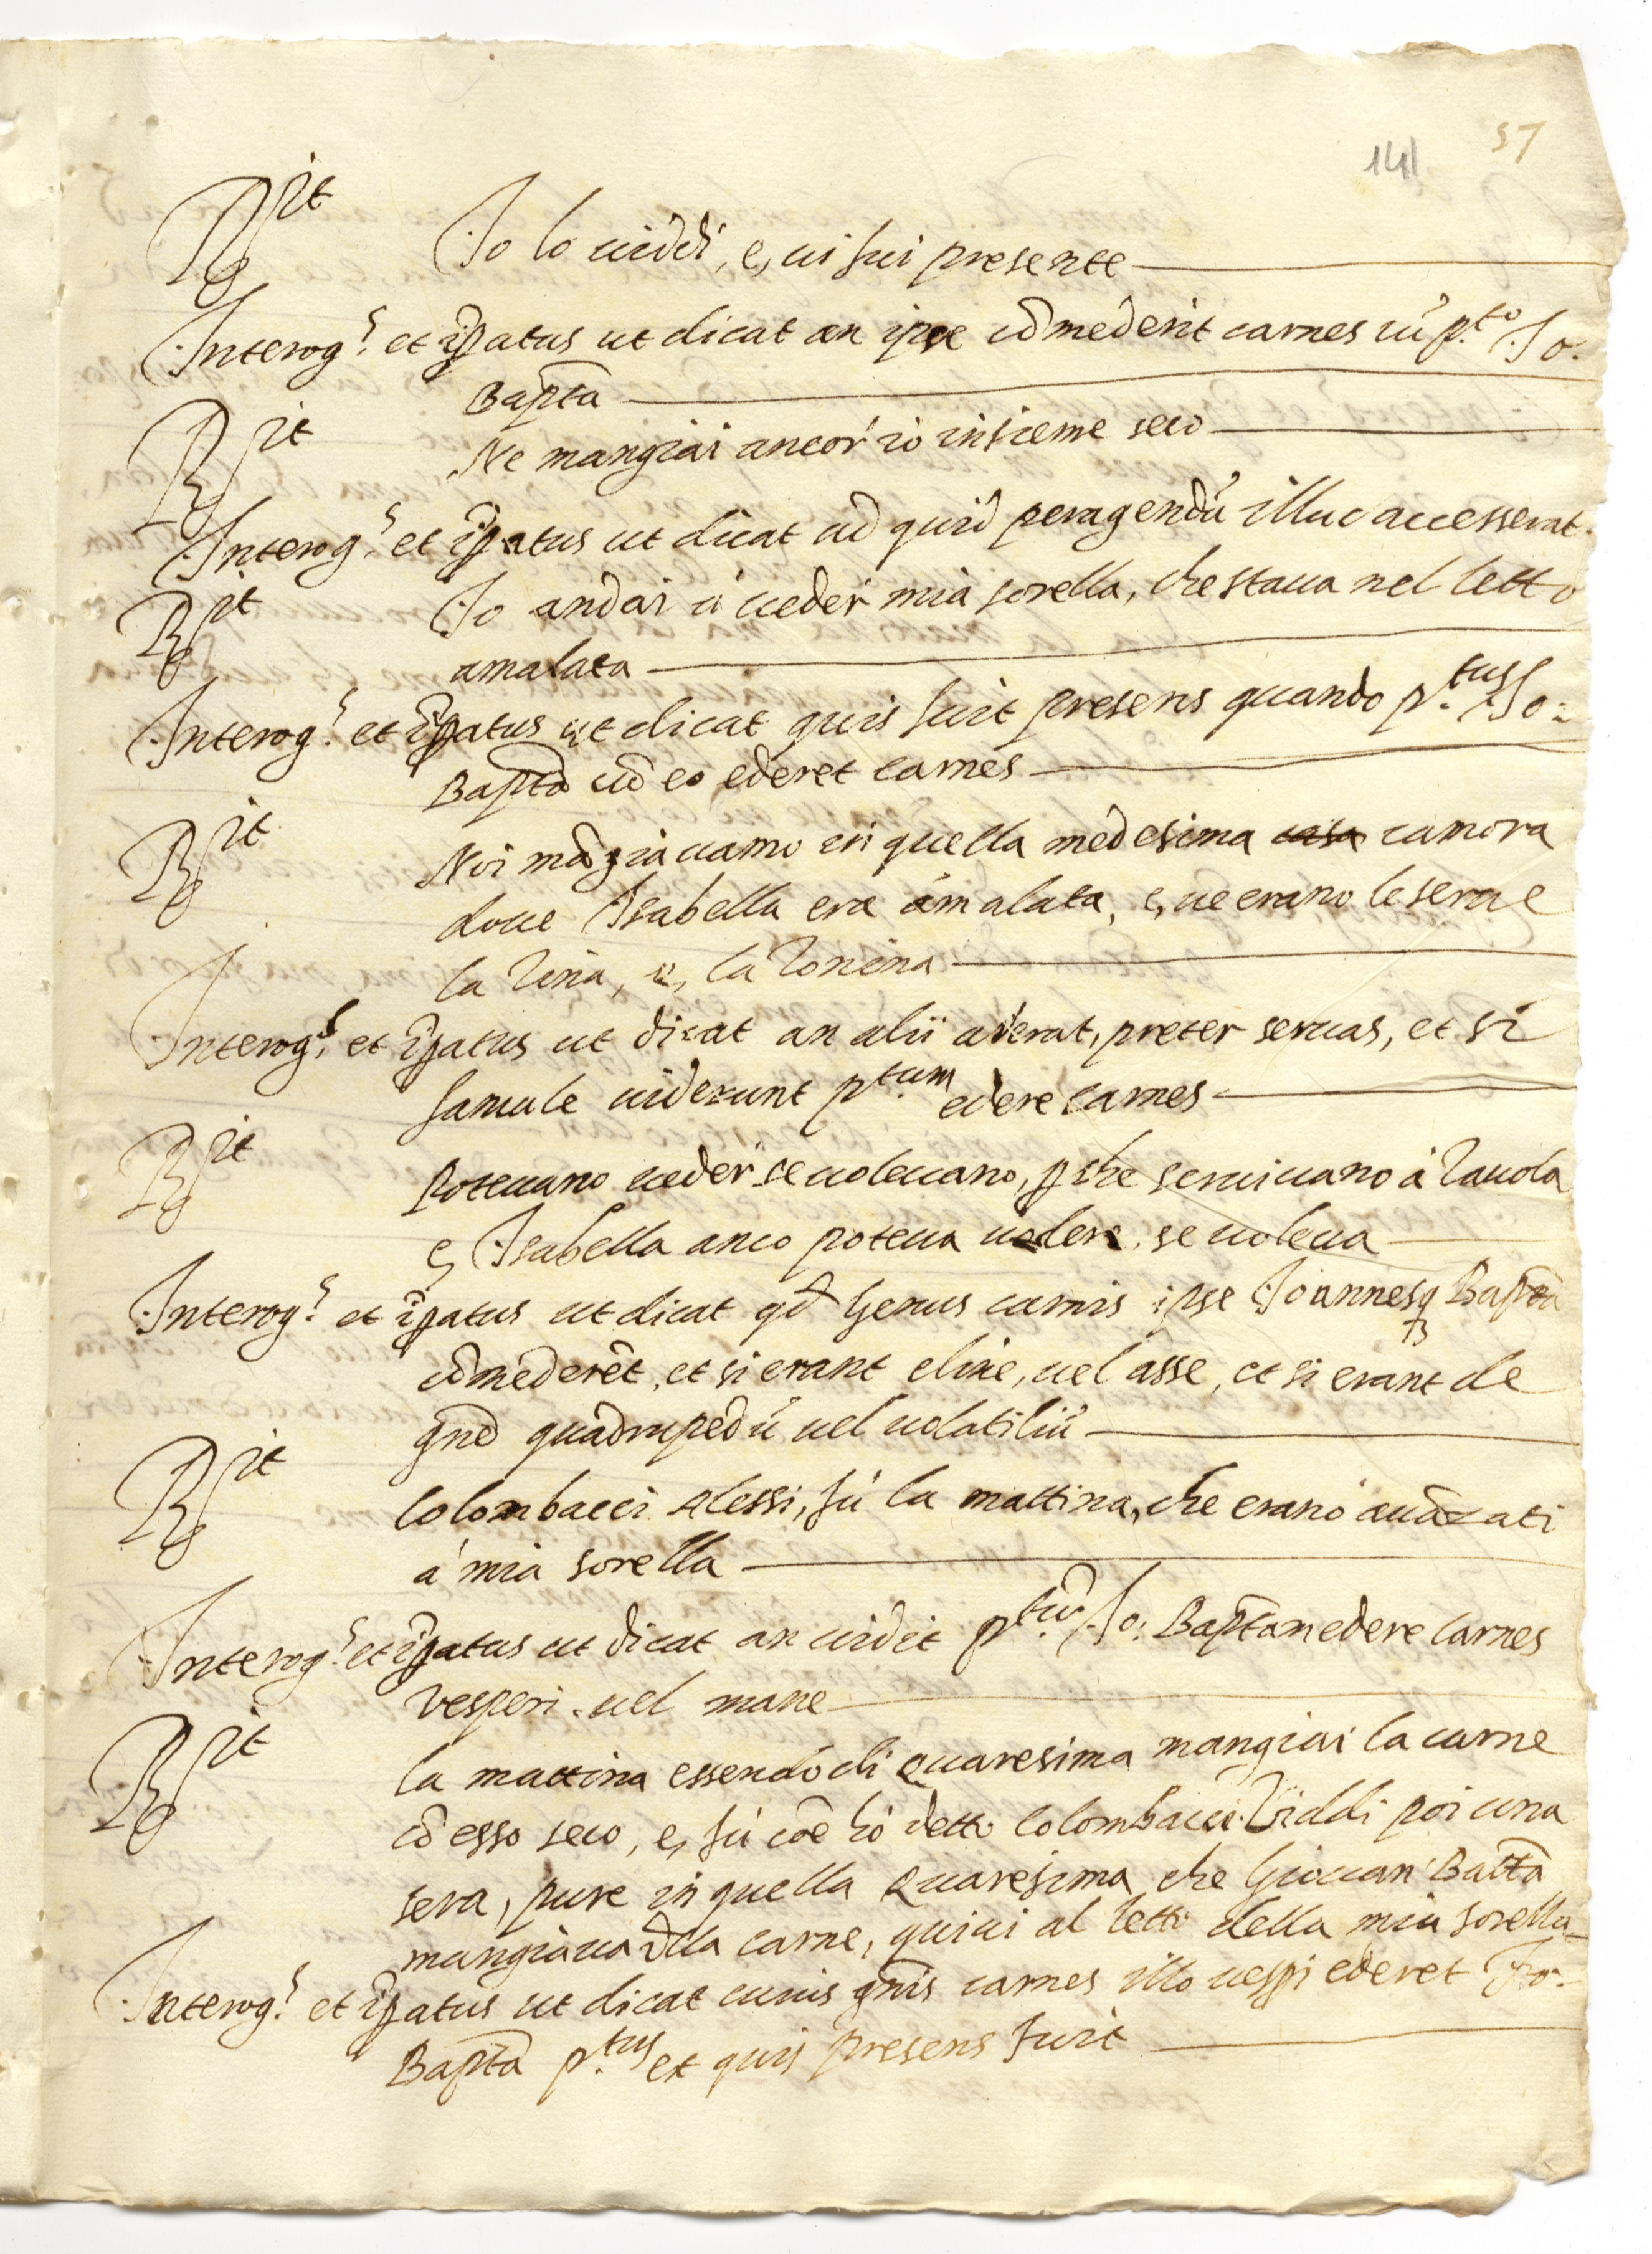 141 57
R.it Io lo viddi, e, vi fui presente
Interog.s et ip̃atus ut dicat an ipse cõmederit carnes cũ p.to Io:
Bapta
R.it Ne mangiai ancor' io insieme seco
Interog.s et ip̃atus ut dicat ad quid peragendũ illuc accesserat.
R.it Io andai à veder mia sorella, che stava nel letto
amalata
Interog.s et ip̃atus ut dicat quis fuit presens quando p.tus Io:
Bapta cũ eo ederet carnes
R.it Noi mãgiavamo in quella medesima casa camora
dove Isabella era amalata, e, ve erano le serve
la Tina, e, la Tonina
Interog.s et ip̃atus ut dicat an alii aderat, preter servas, et si
famule viderunt p.tum edere carnes
R.it Potevano veder se volevano, p che servivano à tavola
e, Isabella anco poteva vedere, se voleva
Interog.s et ip̃atus ut dicat qd genus carnis ipse Ioannesq Bapta
cõmederẽt, et si erant elixe, vel asse, et si erant de
gñe quadrupedũ vel volatiliũ
R.it Colombacci alessi, fù la mattina, che erano avãzati
à mia sorella
Interog.s et ip̃atus ut dicat an vidit p.tũ Io: Baptam edere carnes
vesperi vel mane
R.it la mattina essendo di quaresima mangiai la carne
cõ esso seco, e, fù cõe hò detto Colombacci. Viddi poi una
sera, pure in quella quaresima che Giovan Batta
mangiava dlla carne, quivi al letto della mia sorella
Interog.s et ip̃atus ut dicat cuius gñis carnes illo vespi ederet Io:
Bapta p.tus et quis presens fuit